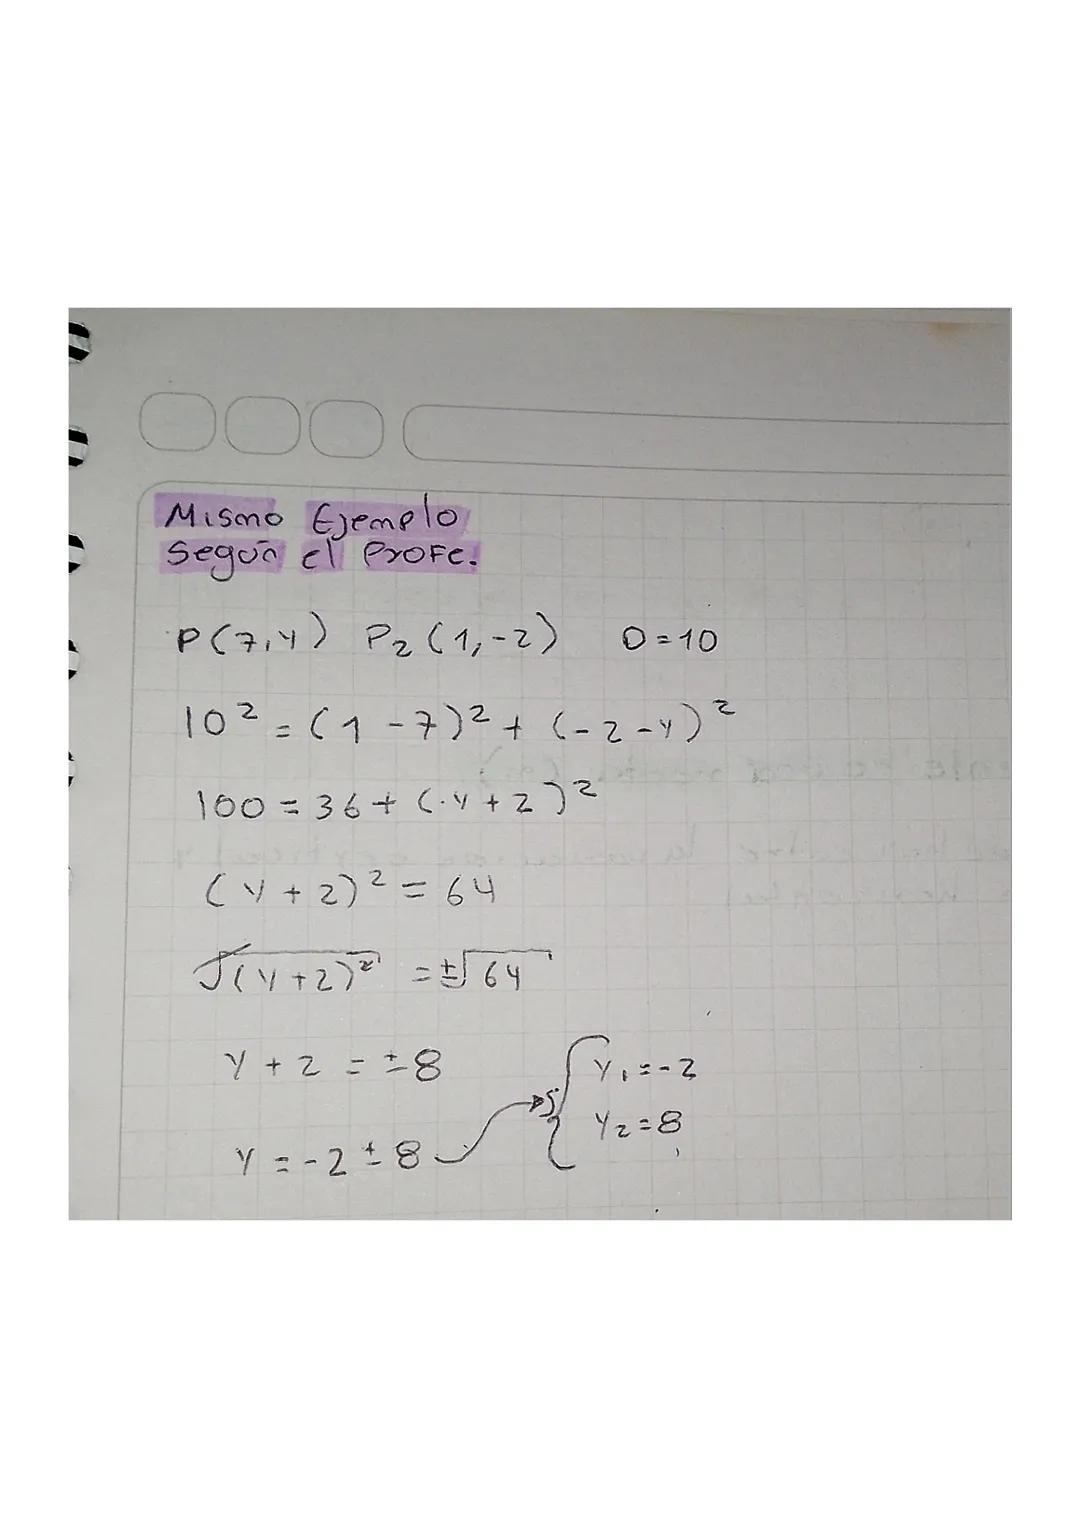 Mismo Ejemplo
Según el Profe.
P(7,y) P₂(1,-2) D=10
10² = (1-7)² + (-2-y)²
100 = 36 + (y+2)²
(y+2)² = 64
√(y+2)² = ±√64
y+2 = ±8
y = -2±8
y₁=-2
y₂=8